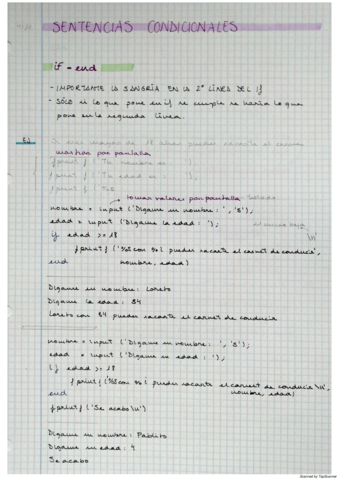 SENTENCIAS CONDICIONALES
if - end
- IMPORTANTE LA SANGRÍA EN LA 2ª LÍNEA DEL if
- SÓLO si lo que pone en if se cumple se haría lo que
pone en la segunda línea.
EJ
mostrar por pantalla
tomar valores por pantalla
nombre = input ('Dígame su nombre: ', 's');
edad = input ('Dígame la edad: ');
if edad >= 18
fprintf ('%s con %i puedes sacarte el carnet de conducir',
nombre, edad)
end
Dígame su nombre: Loreto
Dígame la edad: 34
Loreto con 34 puedes sacarte el carnet de conducir
nombre = input ('Dígame su nombre: ', 's');
edad = input ('Dígame su edad: ');
if edad >= 18
fprintf ('%s con %i puedes sacarte el carnet de conducir \n',
nombre, edad)
end
fprintf ('Se acabo \n')
Dígame su nombre: Pablito
Dígame su edad: 4
Se acabo
Scanned by TapScanner